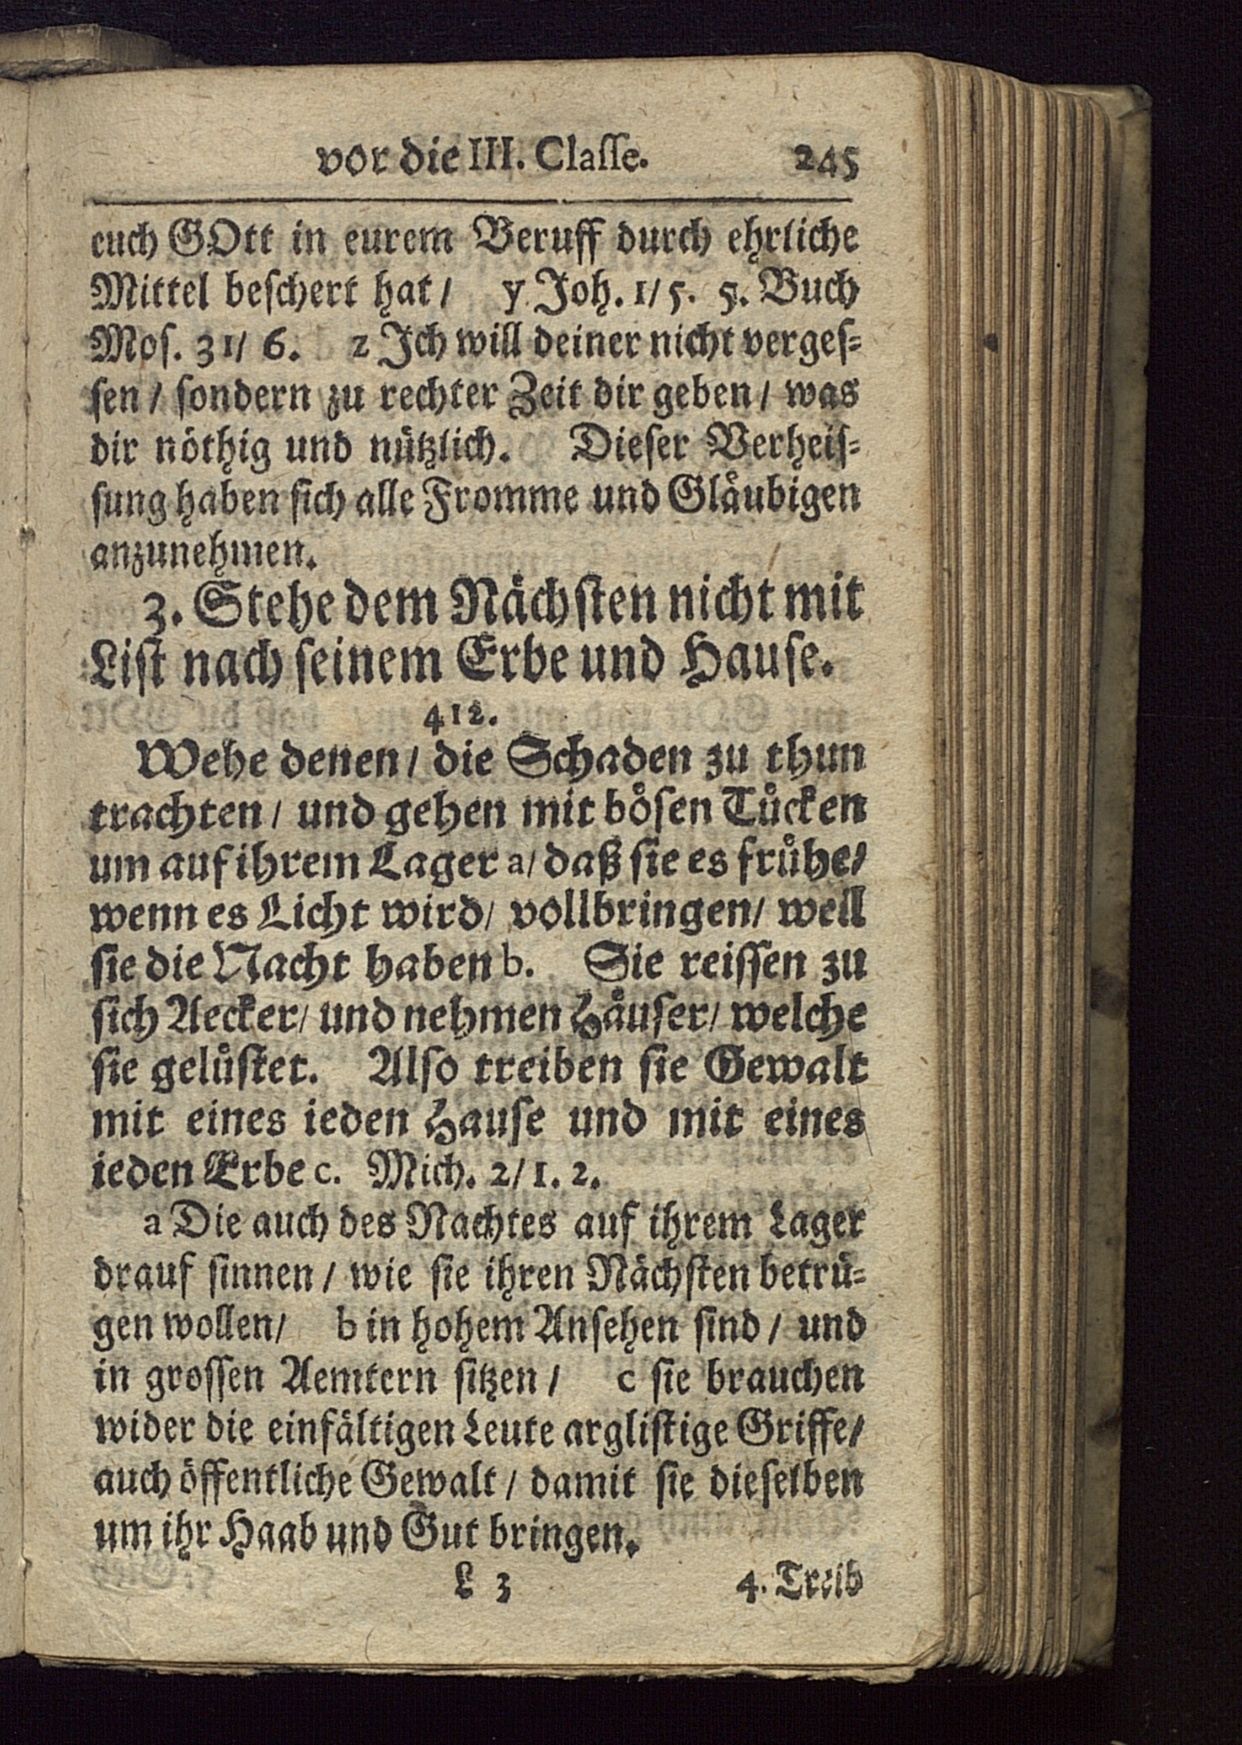 vor die III. Classe. 245
euch GOtt in eurem Beruff durch ehrliche
Mittel beschert hat / y Joh. 1/5. 5. Buch
Mos. 31/ 6. z Ich will deiner nicht verges-
sen / sondern zu rechter Zeit dir geben / was
dir nöthig und nützlich. Dieser Verheis-
sung haben sich alle Fromme und Gläubigen
anzunehmen.
3. Stehe dem Nächsten nicht mit
List nach seinem Erbe und Hause.
412.
Wehe denen / die Schaden zu thun
trachten / und gehen mit bösen Tücken
um auf ihrem Lager a/ daß sie es frühe/
wenn es Licht wird/ vollbringen/ weil
sie die Nacht haben b. Sie reissen zu
sich Aecker/ und nehmen Häuser/ welche
sie gelüstet. Also treiben sie Gewalt
mit eines ieden Hause und mit eines
ieden Erbe c. Mich. 2/1. 2.
a Die auch des Nachtes auf ihrem Lager
drauf sinnen / wie sie ihren Nächsten betrü-
gen wollen/ b in hohem Ansehen sind / und
in grossen Aemtern sitzen / c sie brauchen
wider die einfältigen Leute arglistige Griffe/
auch öffentliche Gewalt / damit sie dieselben
um ihr Haab und Gut bringen.
L 3 4. Treib